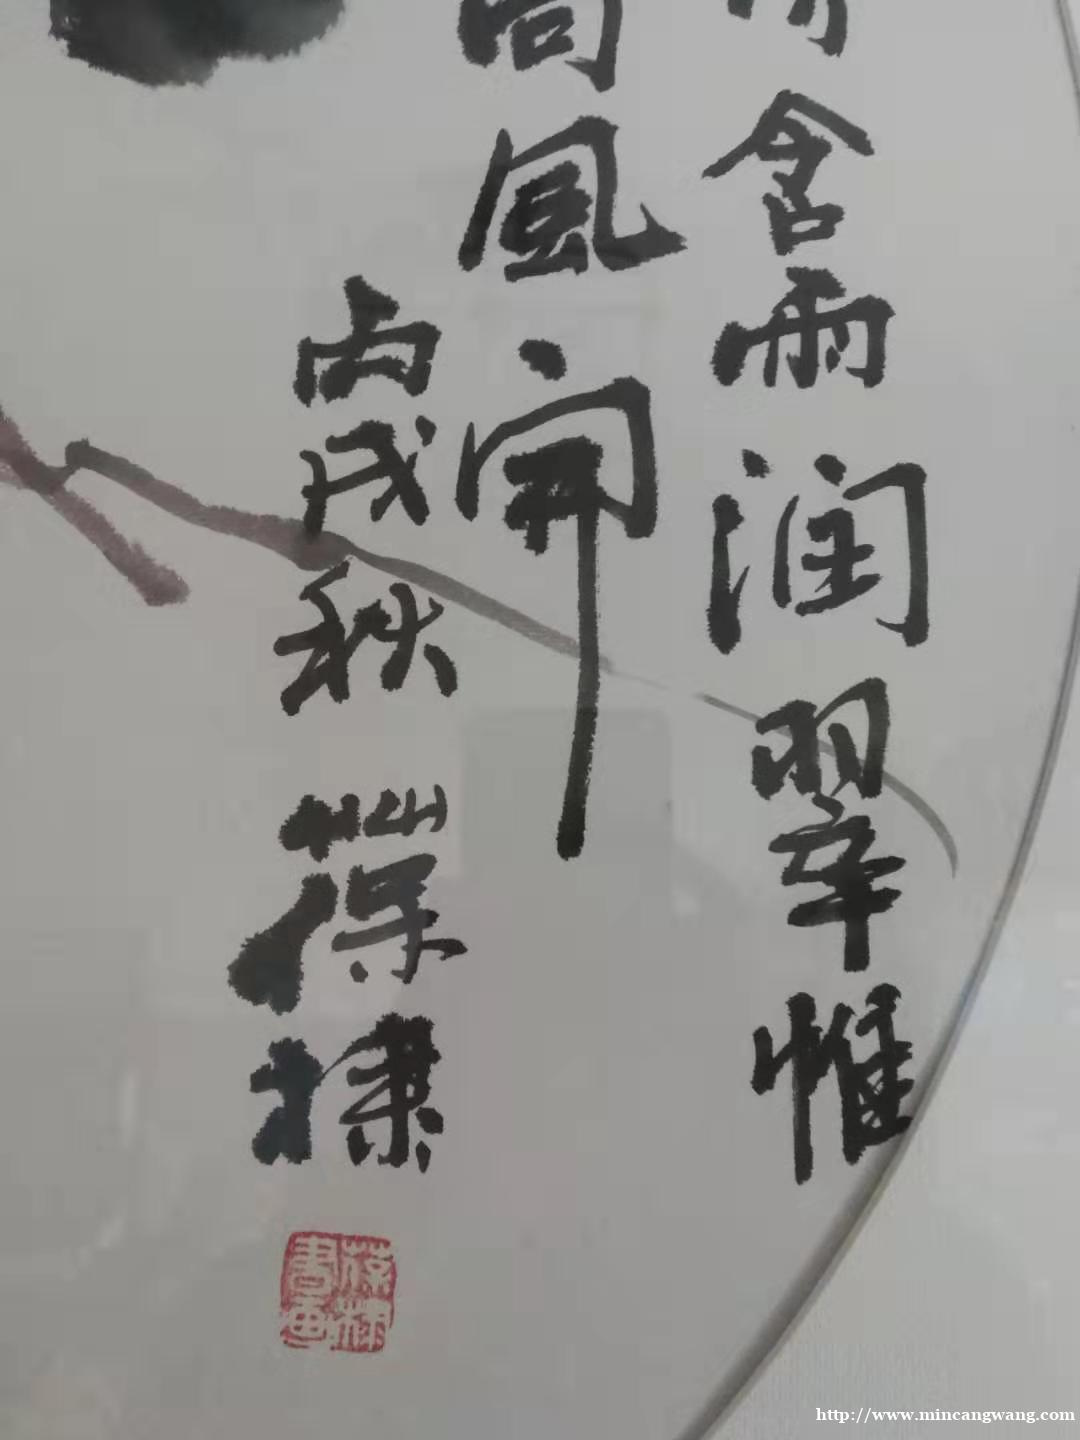 含雨润翠帷
風開
丙戌秋 葆
書画
http://www.mincangwang.com